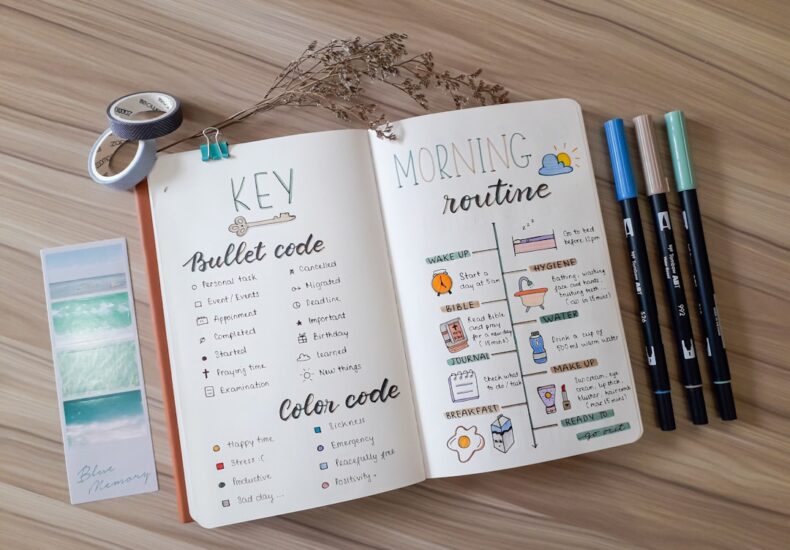 KEY
Bullet code
Personal task
Event / Events
Appoinment
Completed
Started
Praying time
Examination
Cancelled
Migrated
Deadline
Important
Birthday
learned
New things
Color code
Happy time
Stress :(
Productive
Bad day ...
Sickness
Emergency
Peacefully free
Positivity
MORNING
routine
zzz
Go to bed
before 12pm
WAKE UP
Start a
day at 5am
HYGIENE
Bathing, washing
face and hands...
brushing teeth...
BIBLE
Read Bible
and pray
for a new day
WATER
Drink a cup of
500 ml warm water
JOURNAL
Check what
to do / task
MAKE UP
Sun cream, eye
cream, lip thick,
(max 15 mins)
BREAKFAST
READY TO
go out
Blue
Memory
526
992